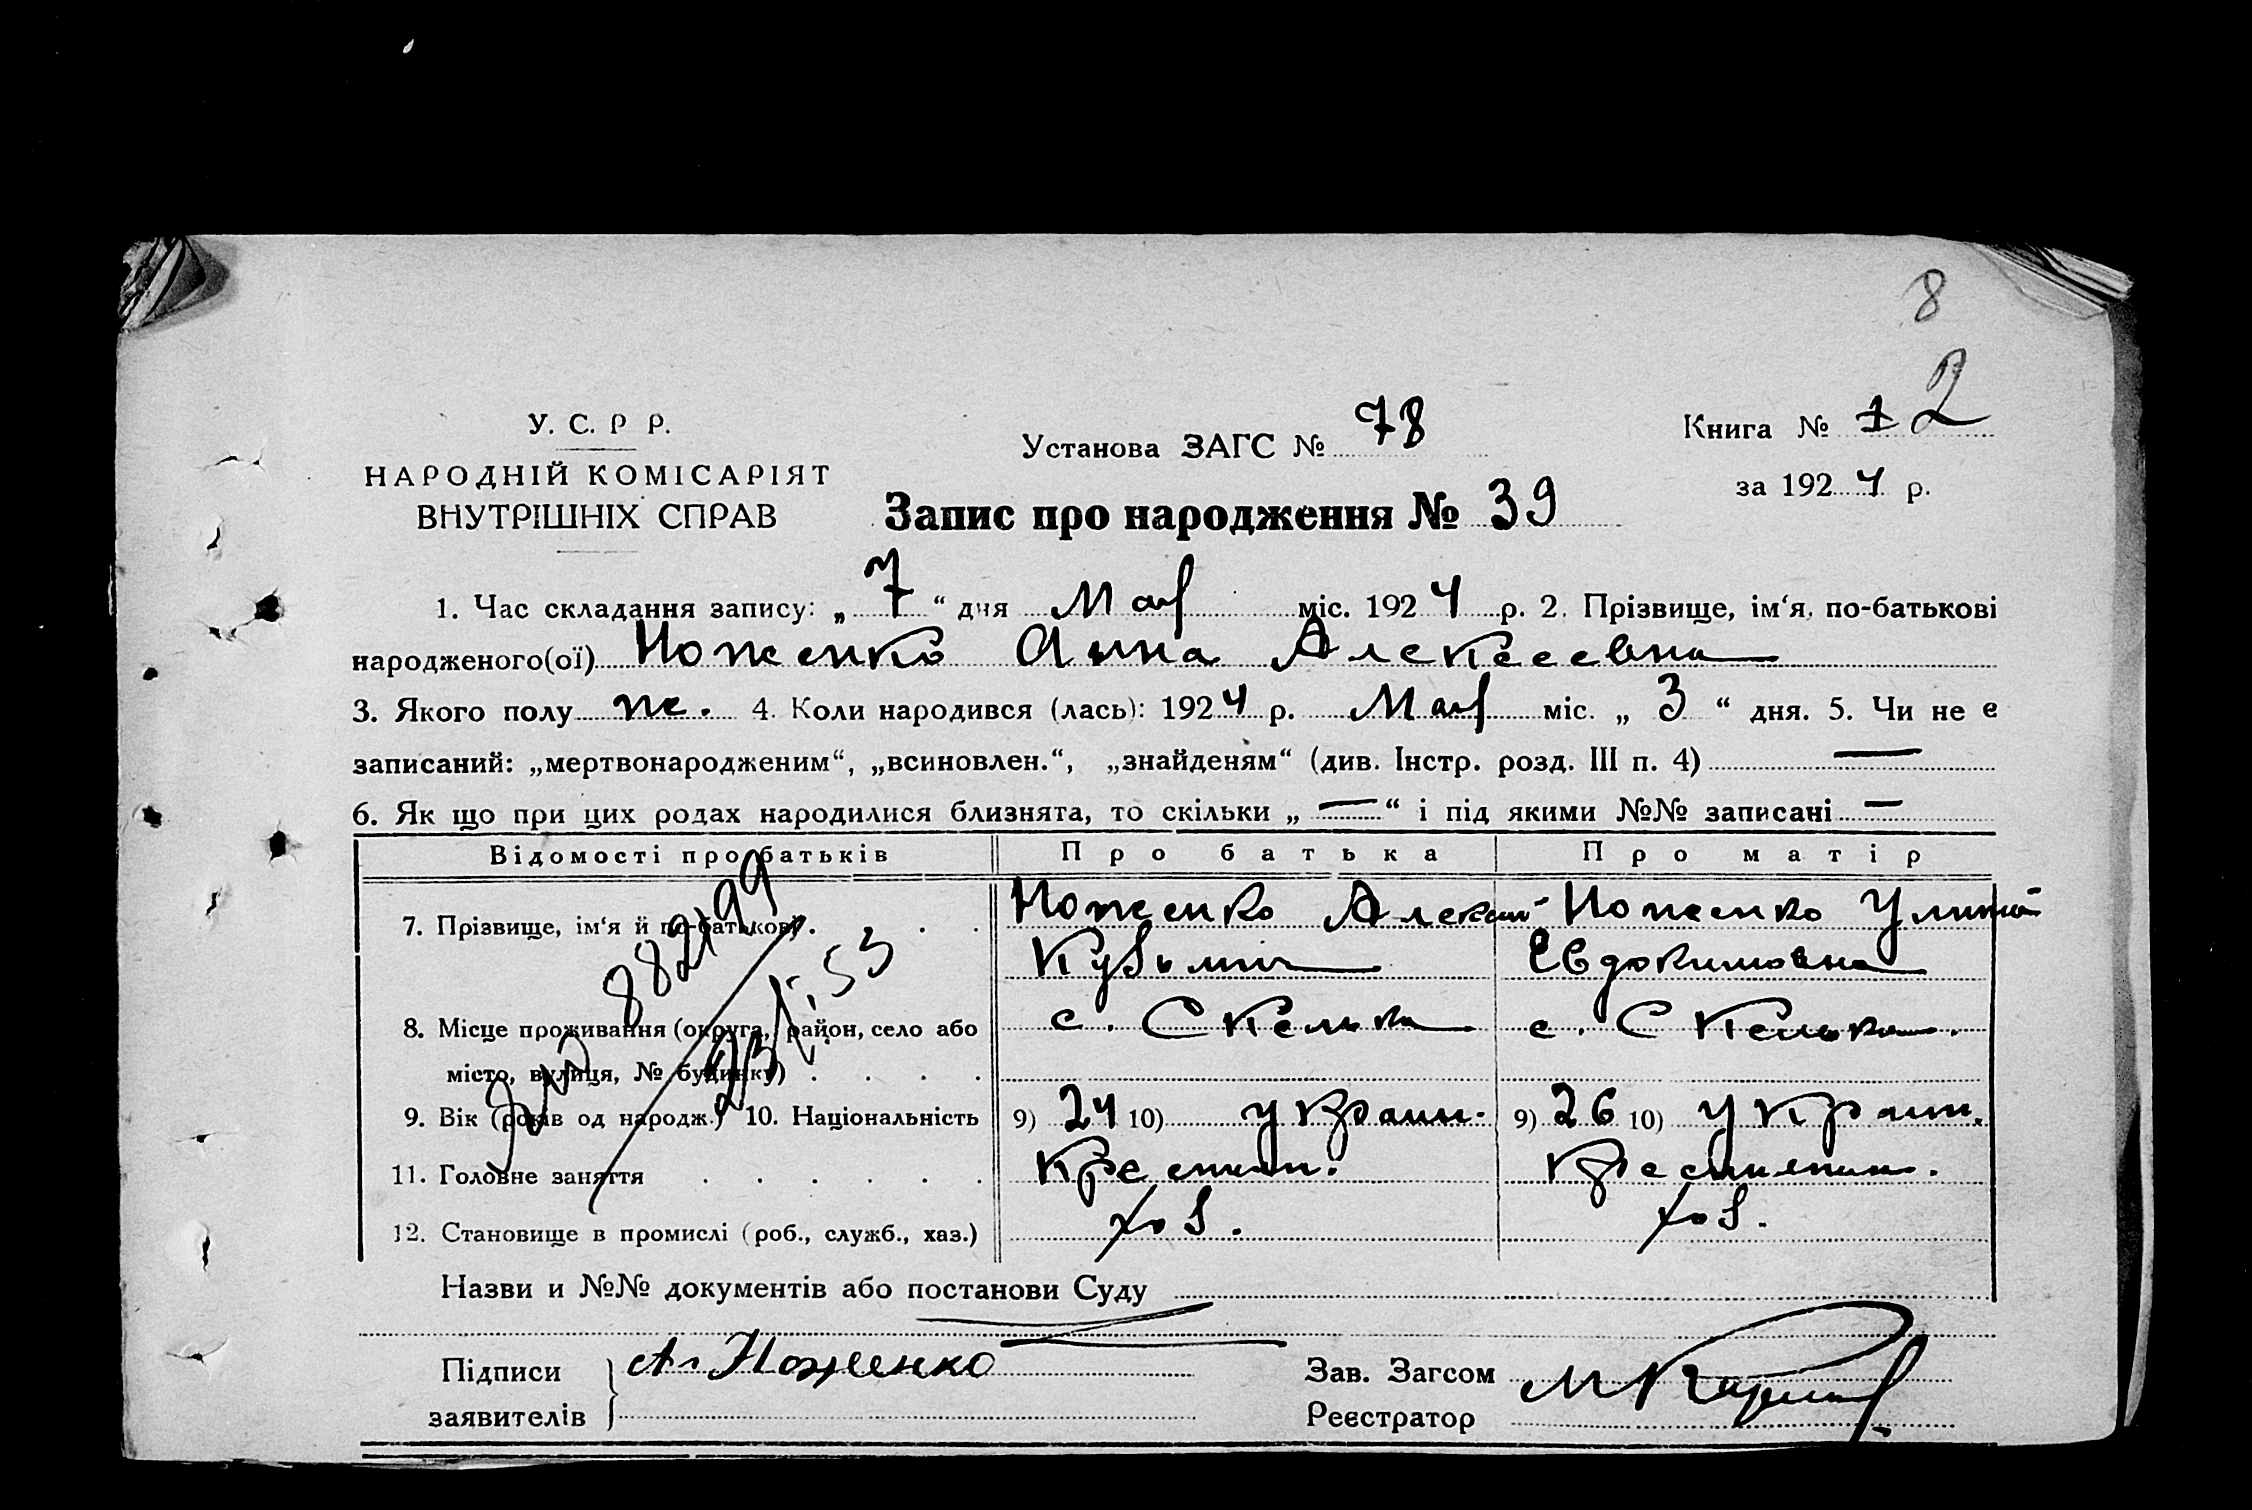 8
У. С. Р Р.
НАРОДНІЙ КОМІСАРІЯТ
ВНУТРІШНІХ СПРАВ
Установа ЗАГС № 78
Книга № 1 2
за 1924 р.
Запис про народження № 39
1. Час складання запису: „ 7 “ дня Мар міс. 1924 р. 2. Прізвище, ім‘я, по-батькові
народженого(ої) Ноженко Анна Алексеевна
3. Якого полу ж. 4. Коли народився (лась): 1924 р. Мар міс. „ 3 “ дня. 5. Чи не є
записаний: „мертвонародженим“, „всиновлен.“, „знайденям“ (див. Інстр. розд. III п. 4) —
6. Як що при цих родах народилися близнята, то скільки „ — “ і під якими №№ записані —
Відомості про батьків Про батька Про матір
7. Прізвище, ім‘я й по-батькові . . . Ноженко Алексей Ноженко
Кузьмич Евдокимовна
882199
53
8. Місце проживання (округа, район, село або с. Скелька с. Скелька.
місто, вулиця, № будинку) . . . .
9. Вік (років од народж.) 10. Національність 9) 24 10) украин. 9) 26 10) украин.
11. Головне заняття . . . . . . Крестян. Крестянин.
12. Становище в промислі (роб., служб., хаз.) хоз. хоз.
Назви и №№ документів або постанови Суду
Підписи заявителів Ал Ноженко
Зав. Загсом
Реєстратор